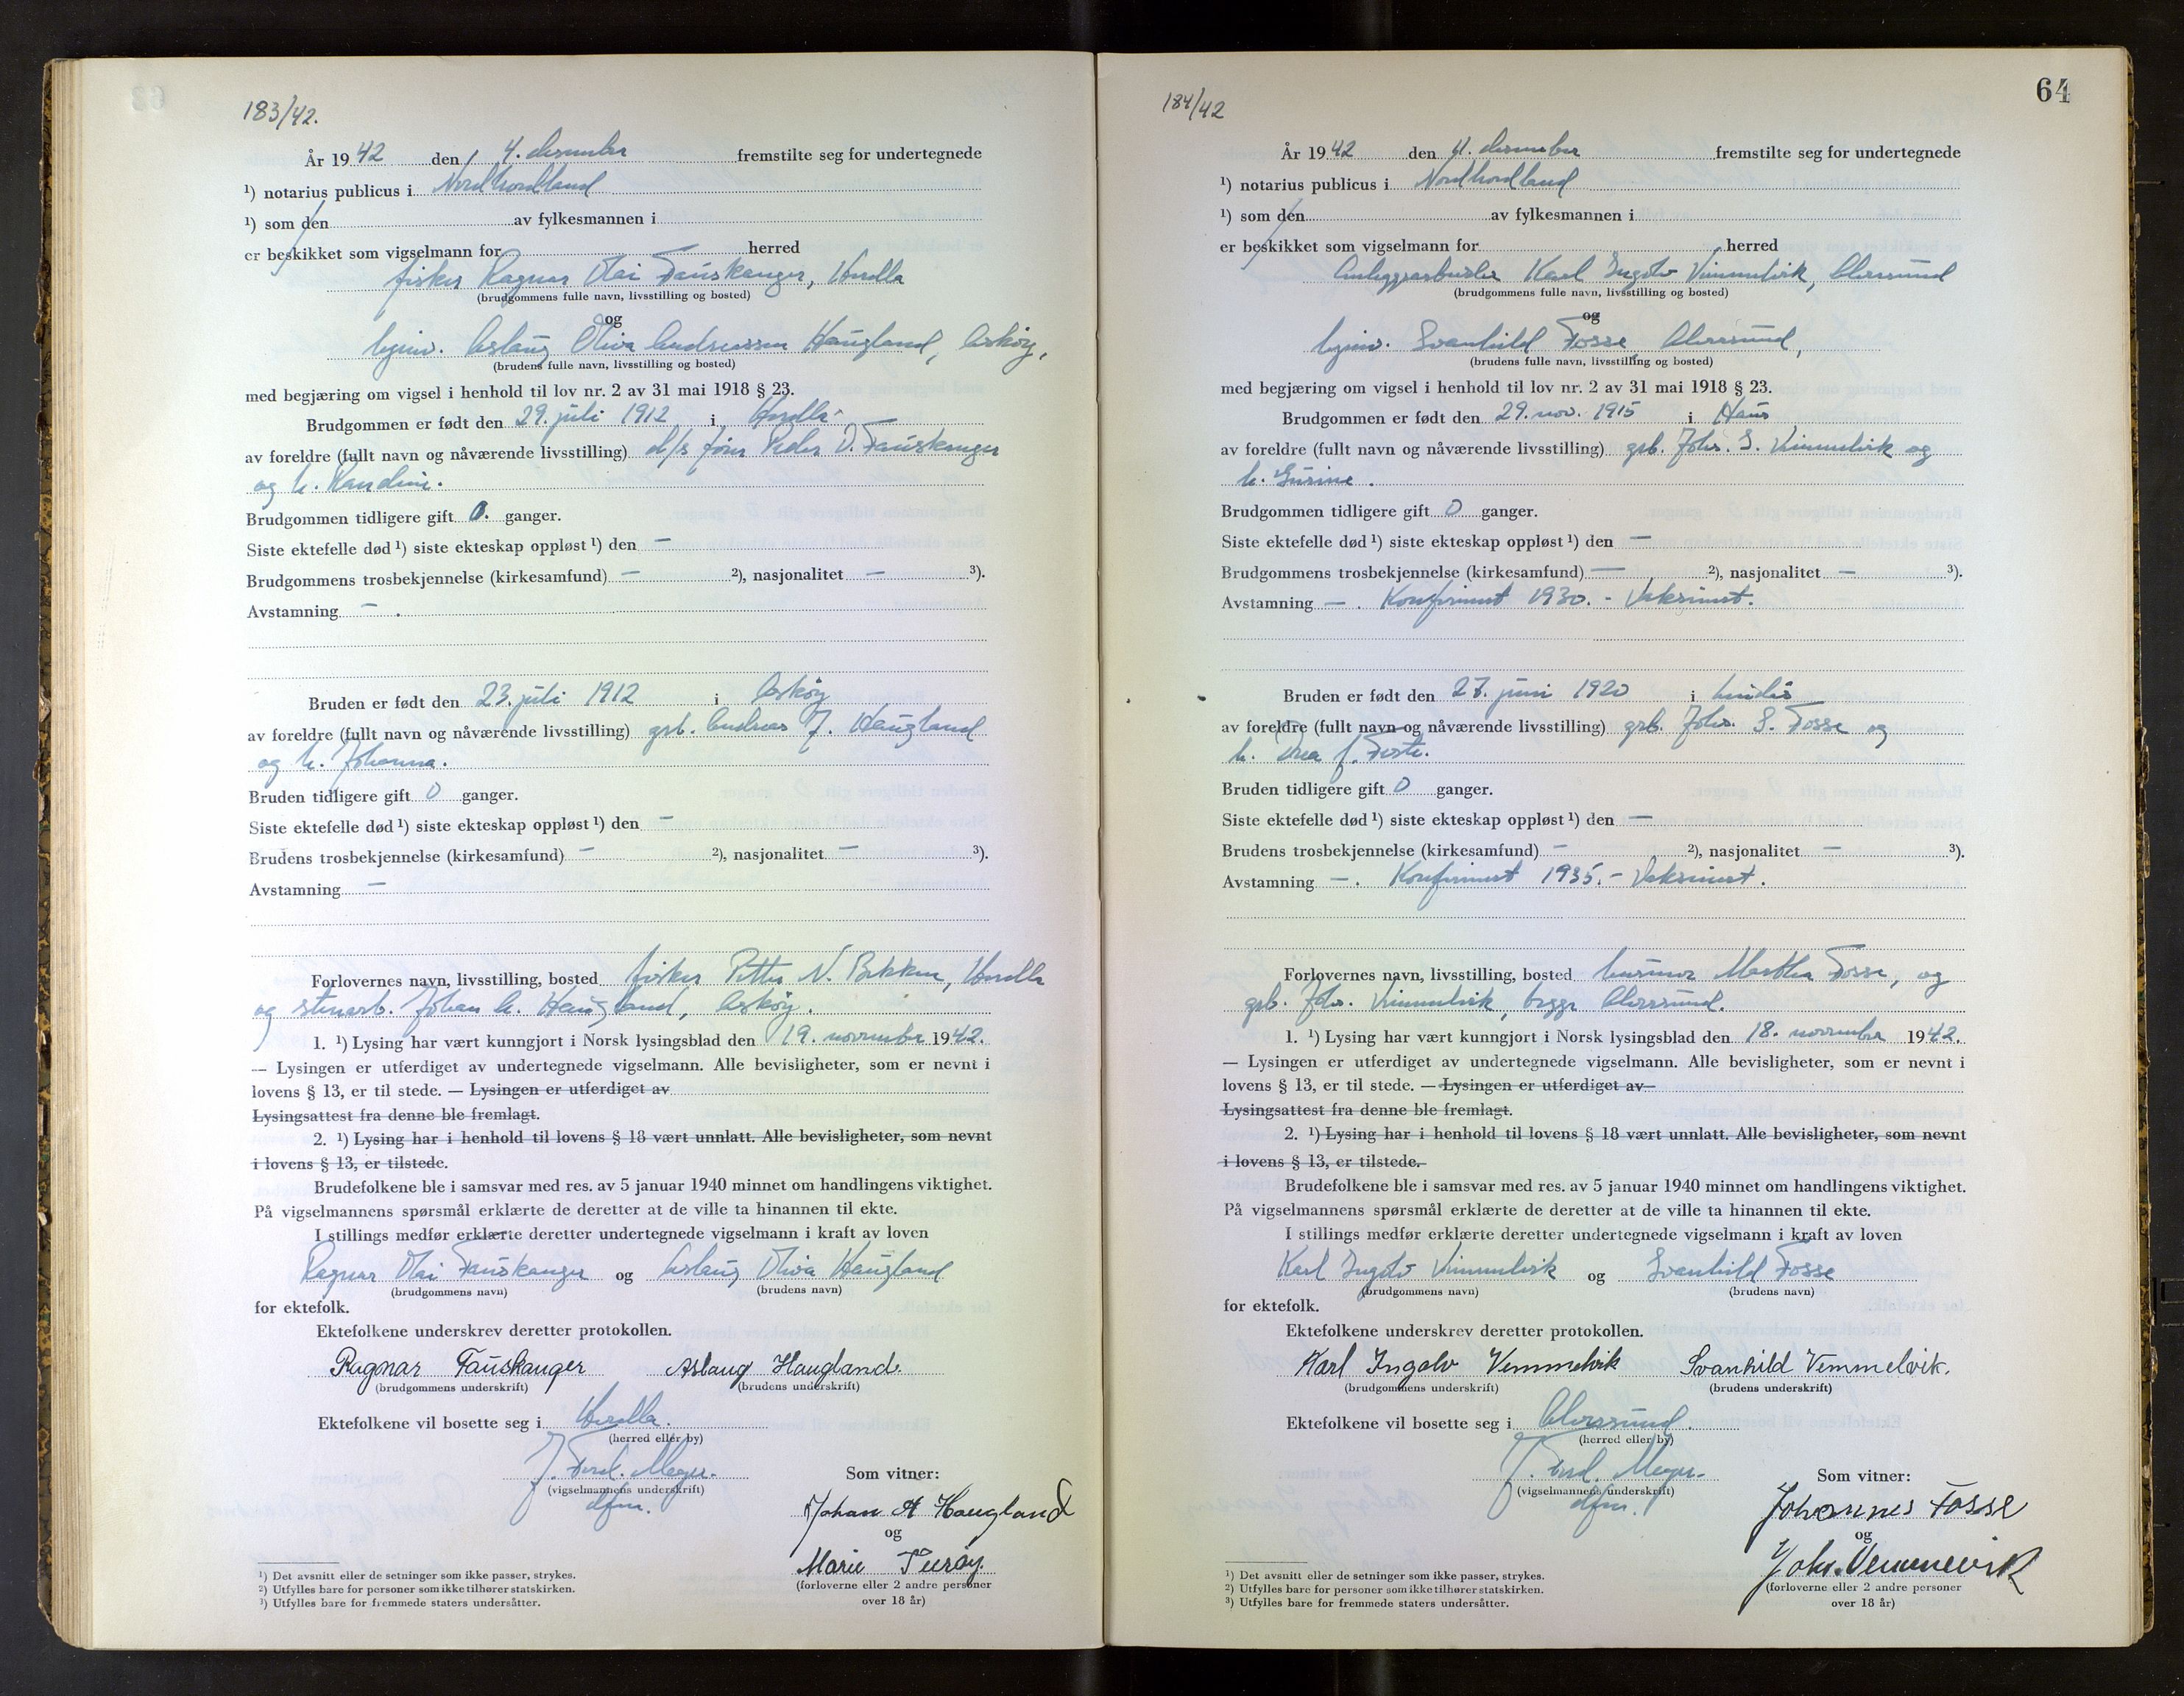 183/42.
År 19 42 den 4. desember fremstilte seg for undertegnede
¹) notarius publicus i Nordhordland
¹) som den av fylkesmannen i
er beskikket som vigselmann for herred
fisker Ragnar Olai Fauskanger, Herdla
(brudgommens fulle navn, livsstilling og bosted)
og
hjmv. Aslaug Oliva Andreassen Haugland, Askøy,
(brudens fulle navn, livsstilling og bosted)
med begjæring om vigsel i henhold til lov nr. 2 av 31 mai 1918 § 23.
Brudgommen er født den 29. juli 1912 i Herdla
av foreldre (fullt navn og nåværende livsstilling) Peder O. Fauskanger
og h. Randine.
Brudgommen tidligere gift 0. ganger.
Siste ektefelle død ¹) siste ekteskap oppløst ¹) den —
Brudgommens trosbekjennelse (kirkesamfund) — ²), nasjonalitet — ³).
Avstamning — .
Bruden er født den 23. juli 1912 i Askøy
av foreldre (fullt navn og nåværende livsstilling) grb. Andreas J. Haugland
og h. Johanna.
Bruden tidligere gift 0 ganger.
Siste ektefelle død ¹) siste ekteskap oppløst ¹) den —
Brudens trosbekjennelse (kirkesamfund) — ²), nasjonalitet — ³).
Avstamning —
Forlovernes navn, livsstilling, bosted fisker Petter N. Bakken, Herdla
og stenarb. Johan A. Haugland, Askøy.
1. ¹) Lysing har vært kunngjort i Norsk lysingsblad den 19. november 1942.
— Lysingen er utferdiget av undertegnede vigselmann. Alle bevisligheter, som er nevnt i
lovens § 13, er til stede. — Lysingen er utferdiget av
Lysingsattest fra denne ble fremlagt.
2. ¹) Lysing har i henhold til lovens § 18 vært unnlatt. Alle bevisligheter, som nevnt
i lovens § 13, er tilstede.
Brudefolkene ble i samsvar med res. av 5 januar 1940 minnet om handlingens viktighet.
På vigselmannens spørsmål erklærte de deretter at de ville ta hinannen til ekte.
I stillings medfør erklærte deretter undertegnede vigselmann i kraft av loven
Ragnar Olai Fauskanger og Aslaug Oliva Haugland
(brudgommens navn) (brudens navn)
for ektefolk.
Ektefolkene underskrev deretter protokollen.
Ragnar Fauskanger Aslaug Haugland.
(brudgommens underskrift) (brudens underskrift)
Ektefolkene vil bosette seg i Herdla.
(herred eller by)
J. Ferd. Meyer.
(vigselmannens underskrift)
dfm.
Som vitner:
Johan A Haugland
og
Marie Turøy.
(forloverne eller 2 andre personer
over 18 år)
¹) Det avsnitt eller de setninger som ikke passer, strykes.
²) Utfylles bare for personer som ikke tilhører statskirken.
³) Utfylles bare for fremmede staters undersåtter.
64
184/42
År 19 42 den 4. desember fremstilte seg for undertegnede
¹) notarius publicus i Nordhordland
¹) som den av fylkesmannen i
er beskikket som vigselmann for herred
Anleggsarbeider Karl Ingolv Vemmelvik, Alversund
(brudgommens fulle navn, livsstilling og bosted)
og
hjmv. Svanhild Fosse Alversund,
(brudens fulle navn, livsstilling og bosted)
med begjæring om vigsel i henhold til lov nr. 2 av 31 mai 1918 § 23.
Brudgommen er født den 29. nov. 1915 i Haus
av foreldre (fullt navn og nåværende livsstilling) grb. Johs. S. Vemmelvik og
h. Gurine .
Brudgommen tidligere gift 0 ganger.
Siste ektefelle død ¹) siste ekteskap oppløst ¹) den —
Brudgommens trosbekjennelse (kirkesamfund) — ²), nasjonalitet — ³).
Avstamning — . Konfirmert 1930. - Vaksinert.
Bruden er født den 27. juni 1920 i Lindås
av foreldre (fullt navn og nåværende livsstilling) grb. Johs. S. Fosse og
h. f. Feste.
Bruden tidligere gift 0 ganger.
Siste ektefelle død ¹) siste ekteskap oppløst ¹) den —
Brudens trosbekjennelse (kirkesamfund) — ²), nasjonalitet — ³).
Avstamning — . Konfirmert 1935. - Vaksinert.
Forlovernes navn, livsstilling, bosted husmor Martha Fosse, og
grb. Johs. Vemmelvik, begge Alversund.
1. ¹) Lysing har vært kunngjort i Norsk lysingsblad den 18. november 1942.
— Lysingen er utferdiget av undertegnede vigselmann. Alle bevisligheter, som er nevnt i
lovens § 13, er til stede. — Lysingen er utferdiget av
Lysingsattest fra denne ble fremlagt.
2. ¹) Lysing har i henhold til lovens § 18 vært unnlatt. Alle bevisligheter, som nevnt
i lovens § 13, er tilstede.
Brudefolkene ble i samsvar med res. av 5 januar 1940 minnet om handlingens viktighet.
På vigselmannens spørsmål erklærte de deretter at de ville ta hinannen til ekte.
I stillings medfør erklærte deretter undertegnede vigselmann i kraft av loven
Karl Ingolv Vemmelvik og Svanhild Fosse
(brudgommens navn) (brudens navn)
for ektefolk.
Ektefolkene underskrev deretter protokollen.
Karl Ingolv Vemmelvik Svanhild Vemmelvik.
(brudgommens underskrift) (brudens underskrift)
Ektefolkene vil bosette seg i Alversund.
(herred eller by)
J. Ferd. Meyer.
(vigselmannens underskrift)
dfm.
Som vitner:
Johannes Fosse
og
Johs. Vemmelvik
(forloverne eller 2 andre personer
over 18 år)
¹) Det avsnitt eller de setninger som ikke passer, strykes.
²) Utfylles bare for personer som ikke tilhører statskirken.
³) Utfylles bare for fremmede staters undersåtter.